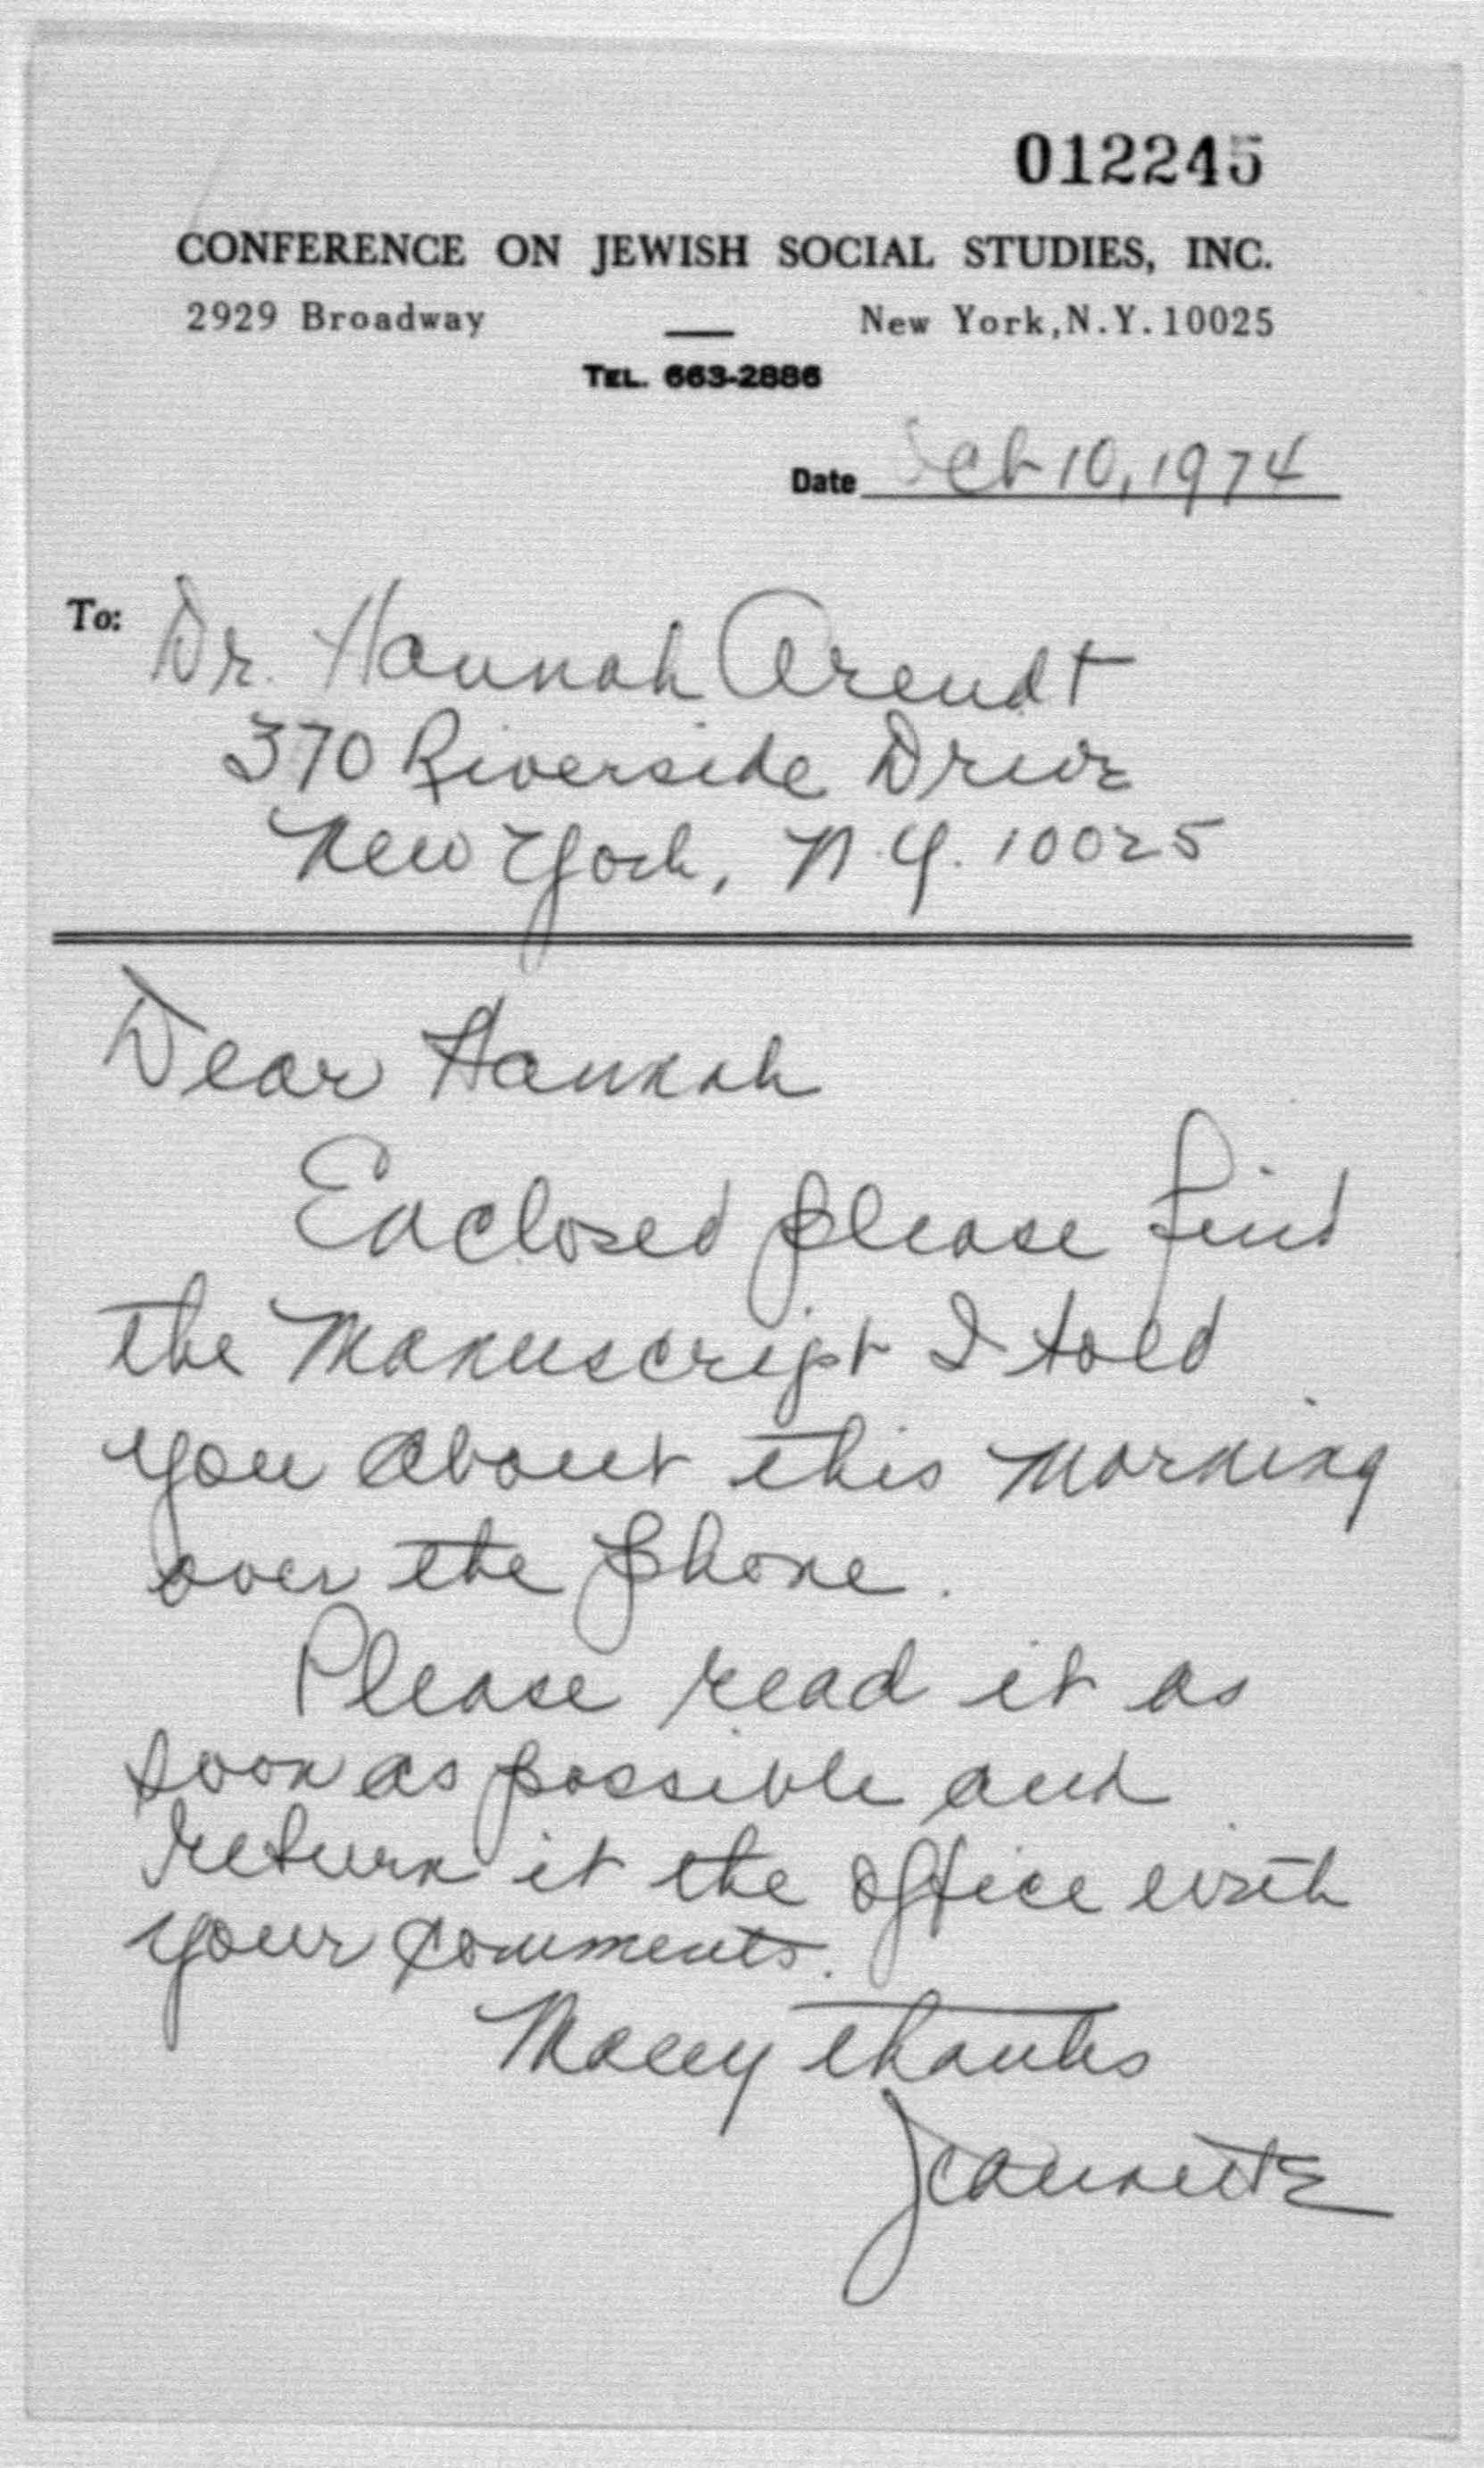 012245
CONFERENCE ON JEWISH SOCIAL STUDIES, INC.
2929 Broadway — New York, N.Y. 10025
TEL. 663-2886
Date 10, 1974
To: Dr. Hannah Arendt
370 Riverside Drive
New York, N.Y. 10025
Dear Hannah
Enclosed please find
the manuscript I told
you about this morning
over the phone.
Please read it as
soon as possible and
return it the office with
your comments.
Many thanks
Jeannette